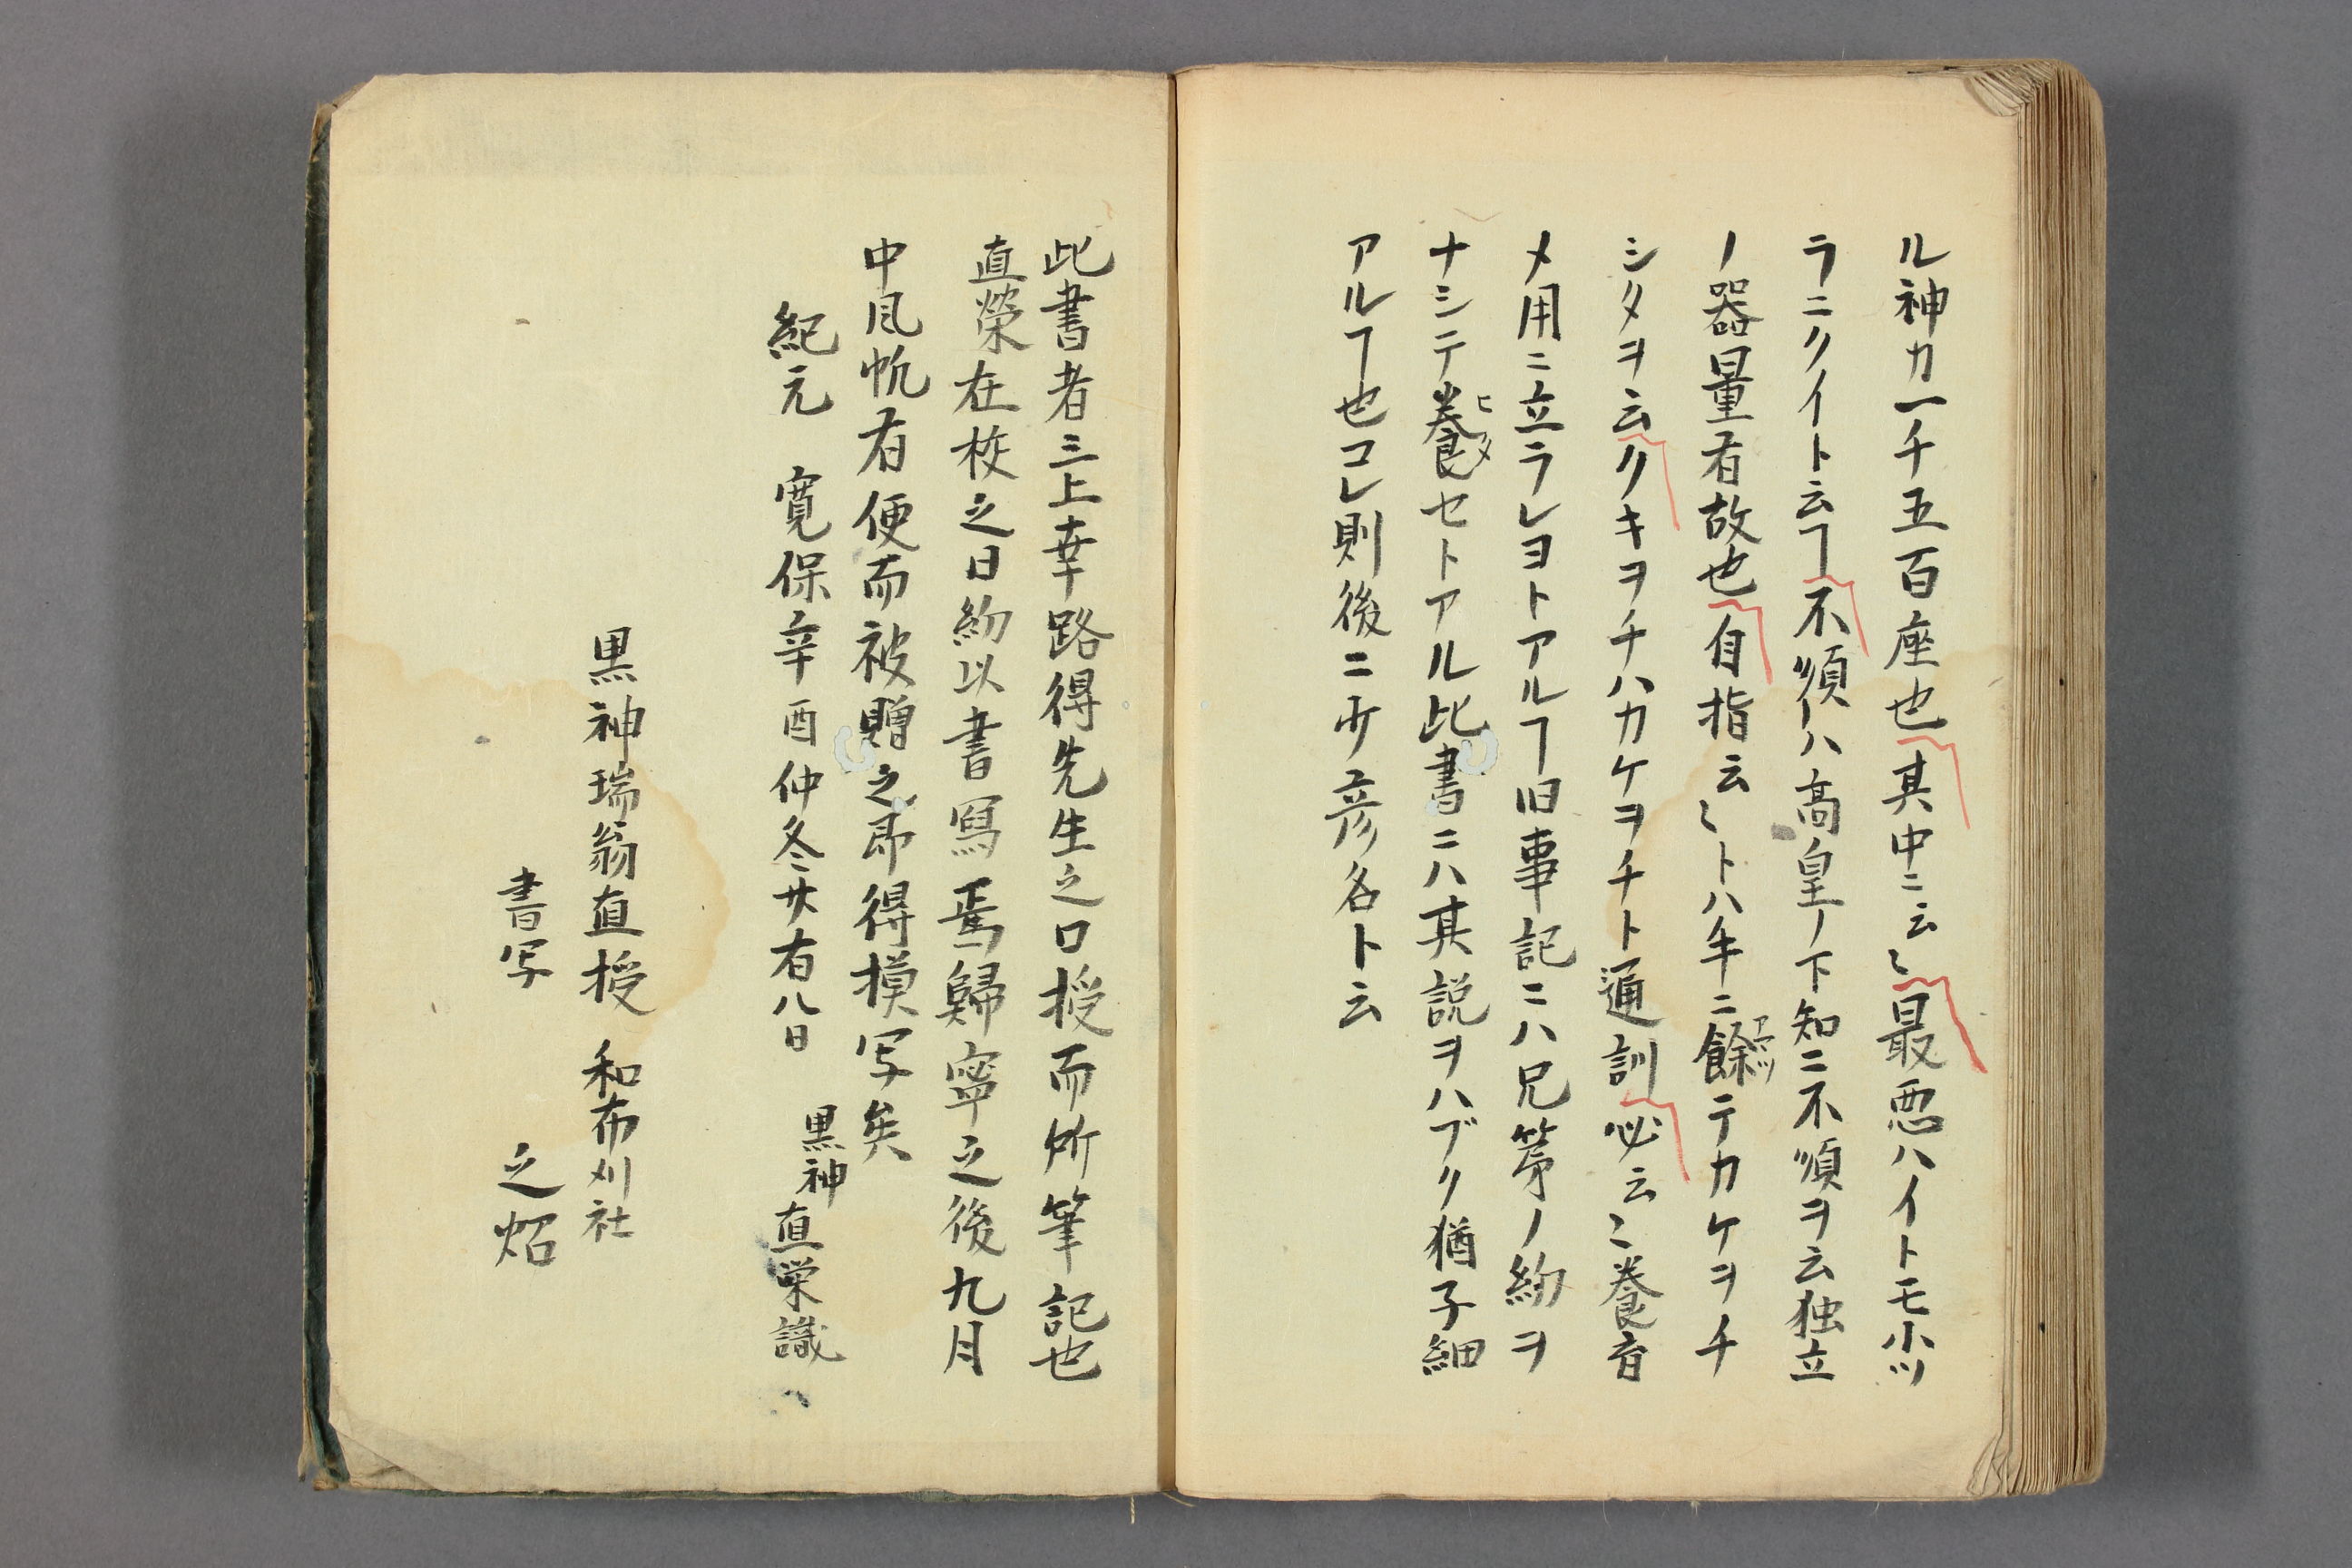 ル神カ一千五百座也其中ニ云〻最悪ハイトモ小ツ
ラニクイト云ヿ不順ハ高皇ノ下知ニ不順ヲ云独立
ノ器量有故也自指云〻トハ手ニ餘アマツテカケヲチ
シタヲ云クキヲチハカケヲチト通訓必云〻養育
メ用ニ立ラレヨトアルヿ旧事記ニハ兄弟ノ約ヲ
ナシテ養ヒタセトアル此書ニハ其説ヲハブク猶子細
アルヿ也コレ則後ニ少彦名ト云
此書者三上幸路得先生之口授而所筆記也
直榮在校之日約以書寫焉歸寧之後九月
中風帆有便而被贈之即得摸写矣
紀元 寛保辛酉仲冬廿有八日 黒神直栄識
黒神瑞翁直授 和布刈社
書写 之炤